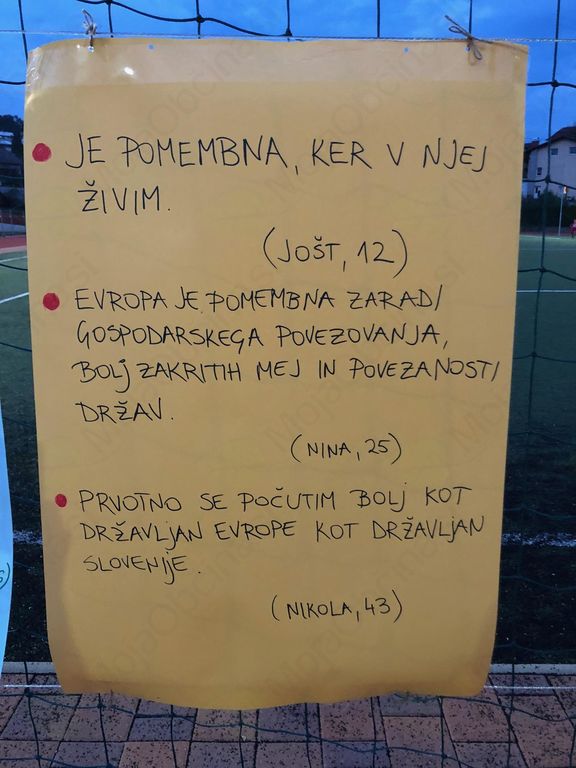 JE POMEMBNA, KER V NJEJ
ŽIVIM.
(JOŠT, 12)
EVROPA JE POMEMBNA ZARADI
GOSPODARSKEGA POVEZOVANJA,
BOLJ ZAKRITIH MEJ IN POVEZANOSTI
DRŽAV.
(NINA, 25)
PRVOTNO SE POČUTIM BOLJ KOT
DRŽAVLJAN EVROPE KOT DRŽAVLJAN
SLOVENIJE.
(NIKOLA, 43)